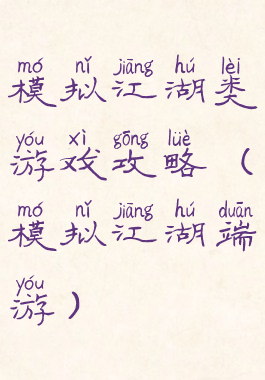 mó nǐ jiāng hú lèi
模拟江湖类
yóu xì gōng lüè
游戏攻略（
mó nǐ jiāng hú duān
模拟江湖端
yóu
游）